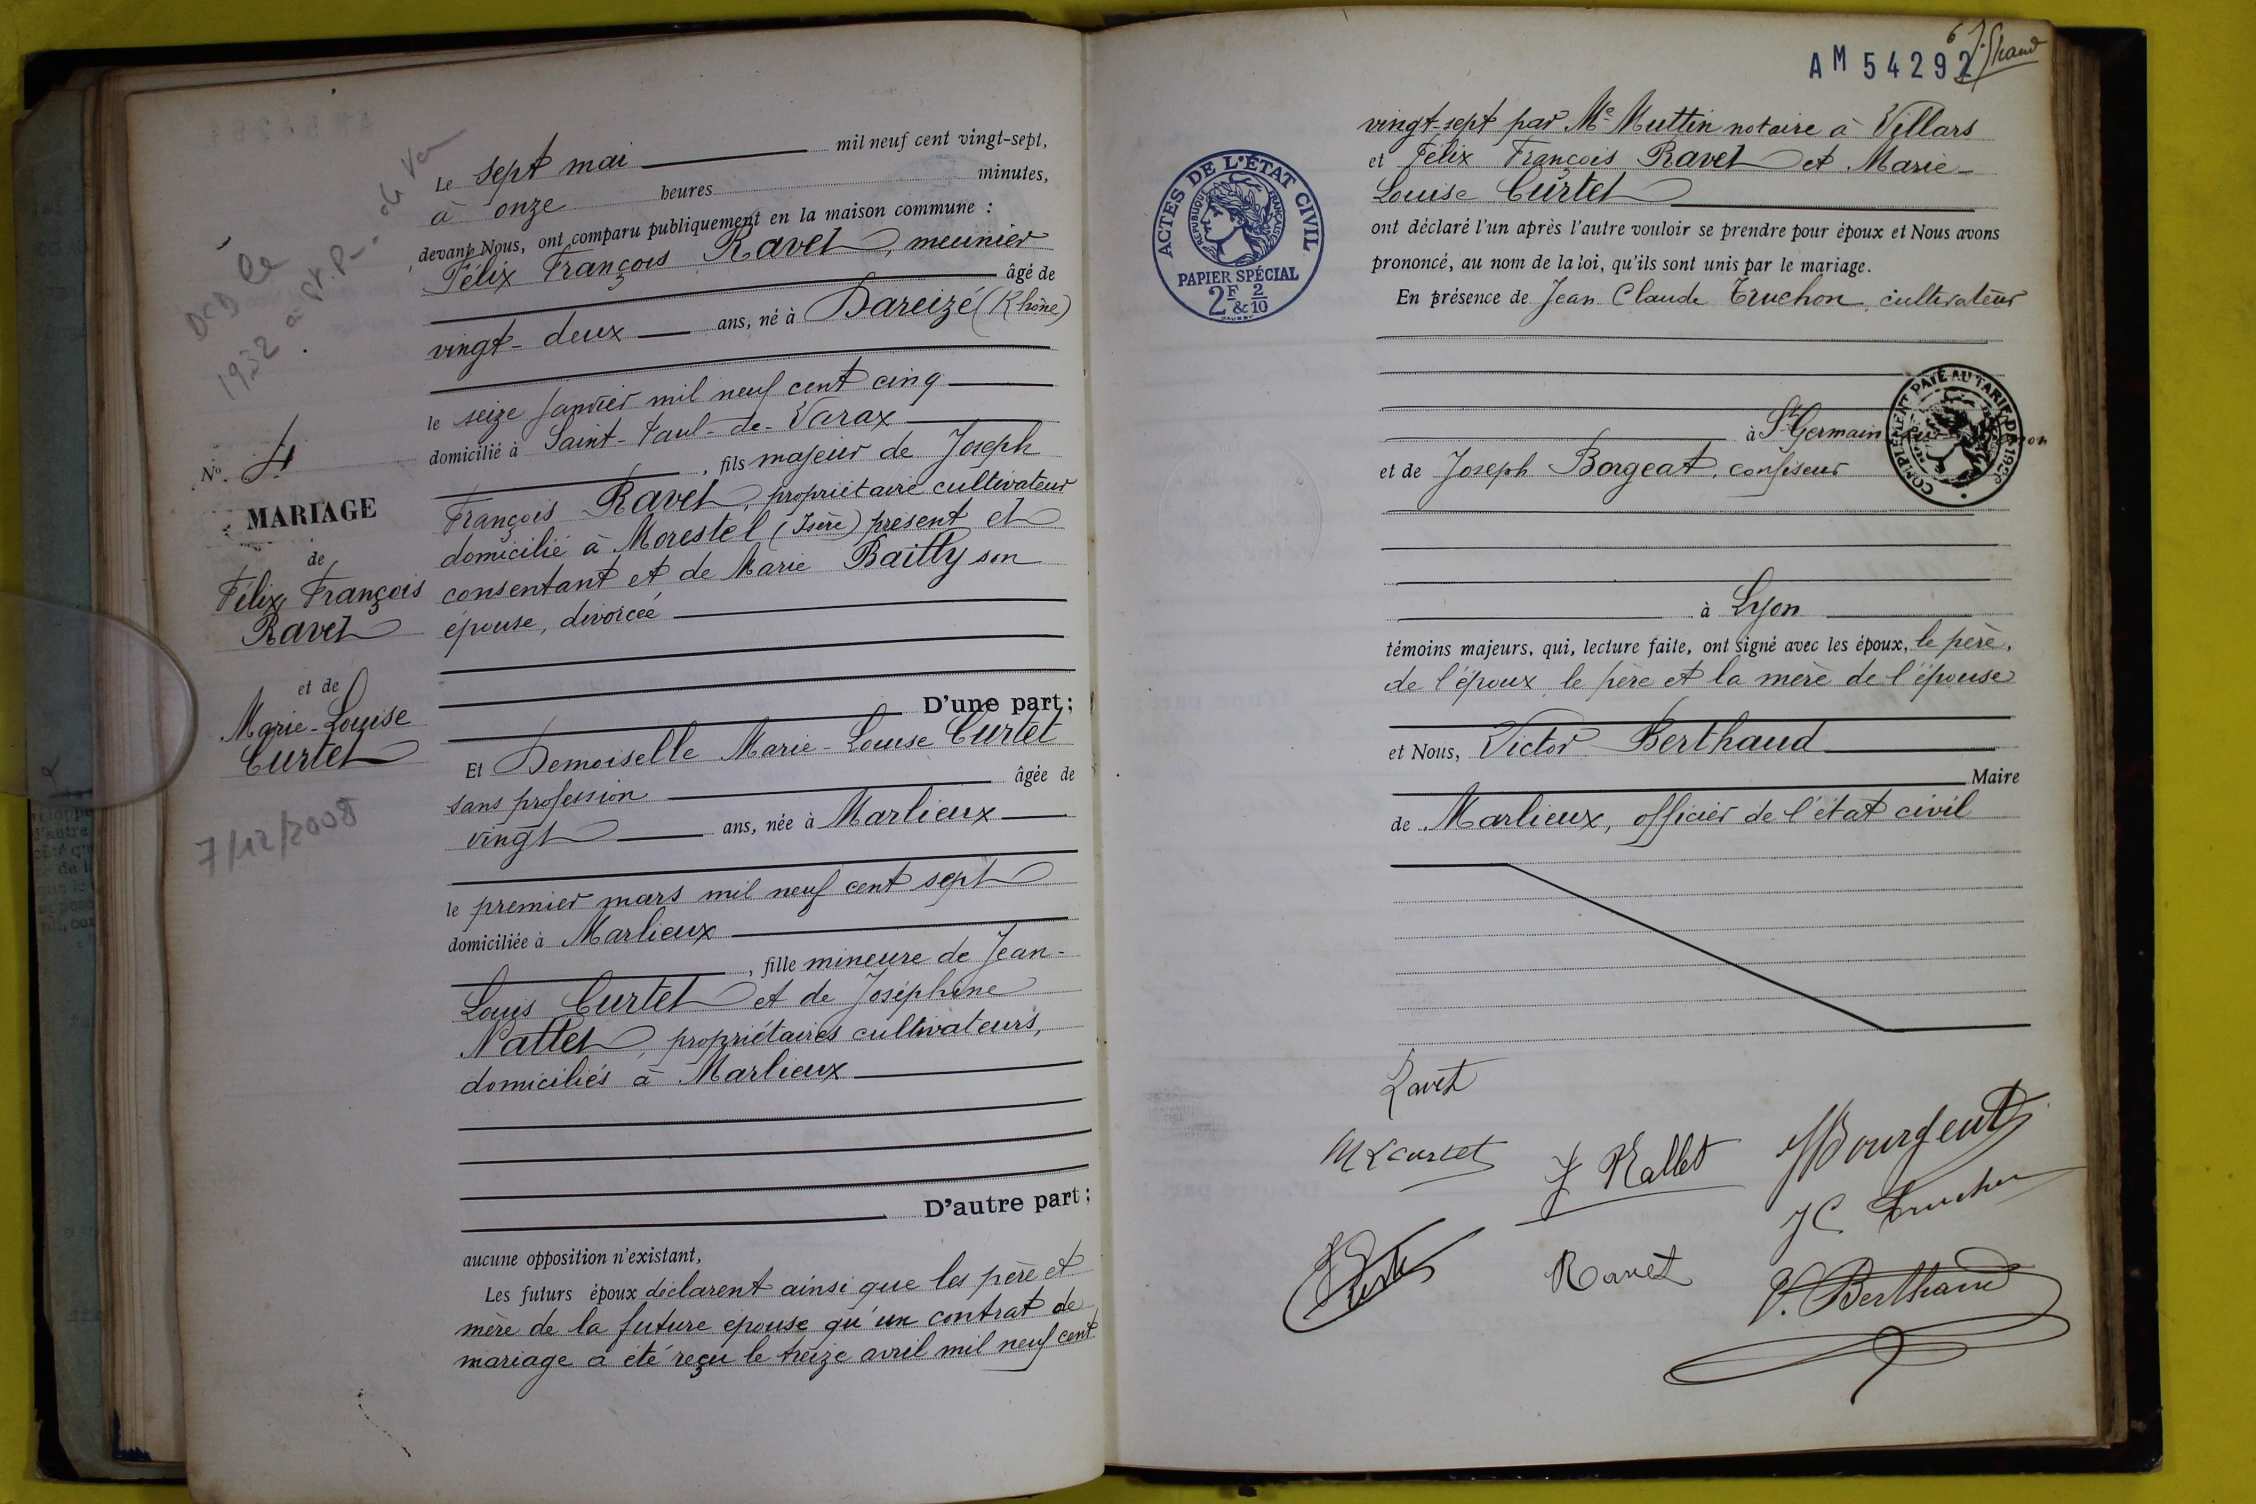 Le sept mai mil neuf cent vingt-sept,
à onze heures minutes,
devant Nous, ont comparu publiquement en la maison commune :
Félix François Ravet, meunier
âgé de
vingt-deux ans, né à Dareizé (Rhône)
le seize janvier mil neuf cent cinq
domicilié à Saint-Paul-de-Varax
, fils majeur de Joseph
François Ravet, propriétaire cultivateur
domicilié à Morestel (Isère) présent et
consentant et de Marie Bailly son
épouse, divorcée
D'une part ;
Et Demoiselle Marie-Louise Curtet
sans profession âgée de
vingt ans, née à Marlieux
le premier mars mil neuf cent sept
domiciliée à Marlieux
, fille mineure de Jean-
Louis Curtet et de Joséphine
Nallet, propriétaires cultivateurs,
domiciliés à Marlieux
D'autre part ;
aucune opposition n'existant,
Les futurs époux déclarent ainsi que les père et
mère de la future épouse qu'un contrat de
mariage a été reçu le treize avril mil neuf cent
Dcd le
1932 à St. P. de Va
No. 4
MARIAGE
de
Félix François
Ravet
et de
Marie-Louise
Curtet
7/12/2008
6
AM 54292
vingt-sept par Me Muttin notaire à Villars
et Félix François Ravet et Marie-
Louise Curtet
ont déclaré l'un après l'autre vouloir se prendre pour époux et Nous avons
prononcé, au nom de la loi, qu'ils sont unis par le mariage.
En présence de Jean Claude Truchon, cultivateur
à St Germain
et de Joseph Borgeat, confiseur
à Lyon
témoins majeurs, qui, lecture faite, ont signé avec les époux, le père,
de l'époux, le père et la mère de l'épouse
et Nous, Victor Berthaud
Maire
de Marlieux, officier de l'état civil
ACTES DE L'ÉTAT CIVIL
RÉPUBLIQUE FRANÇAISE
PAPIER SPÉCIAL
2F & 2/10
COMPLÉMENT PAYÉ AU TARIF DE 192
Ravet
M L Curtet
J Nallet
J Bourgeat
J C Truchon
Ravet
V. Berthaud